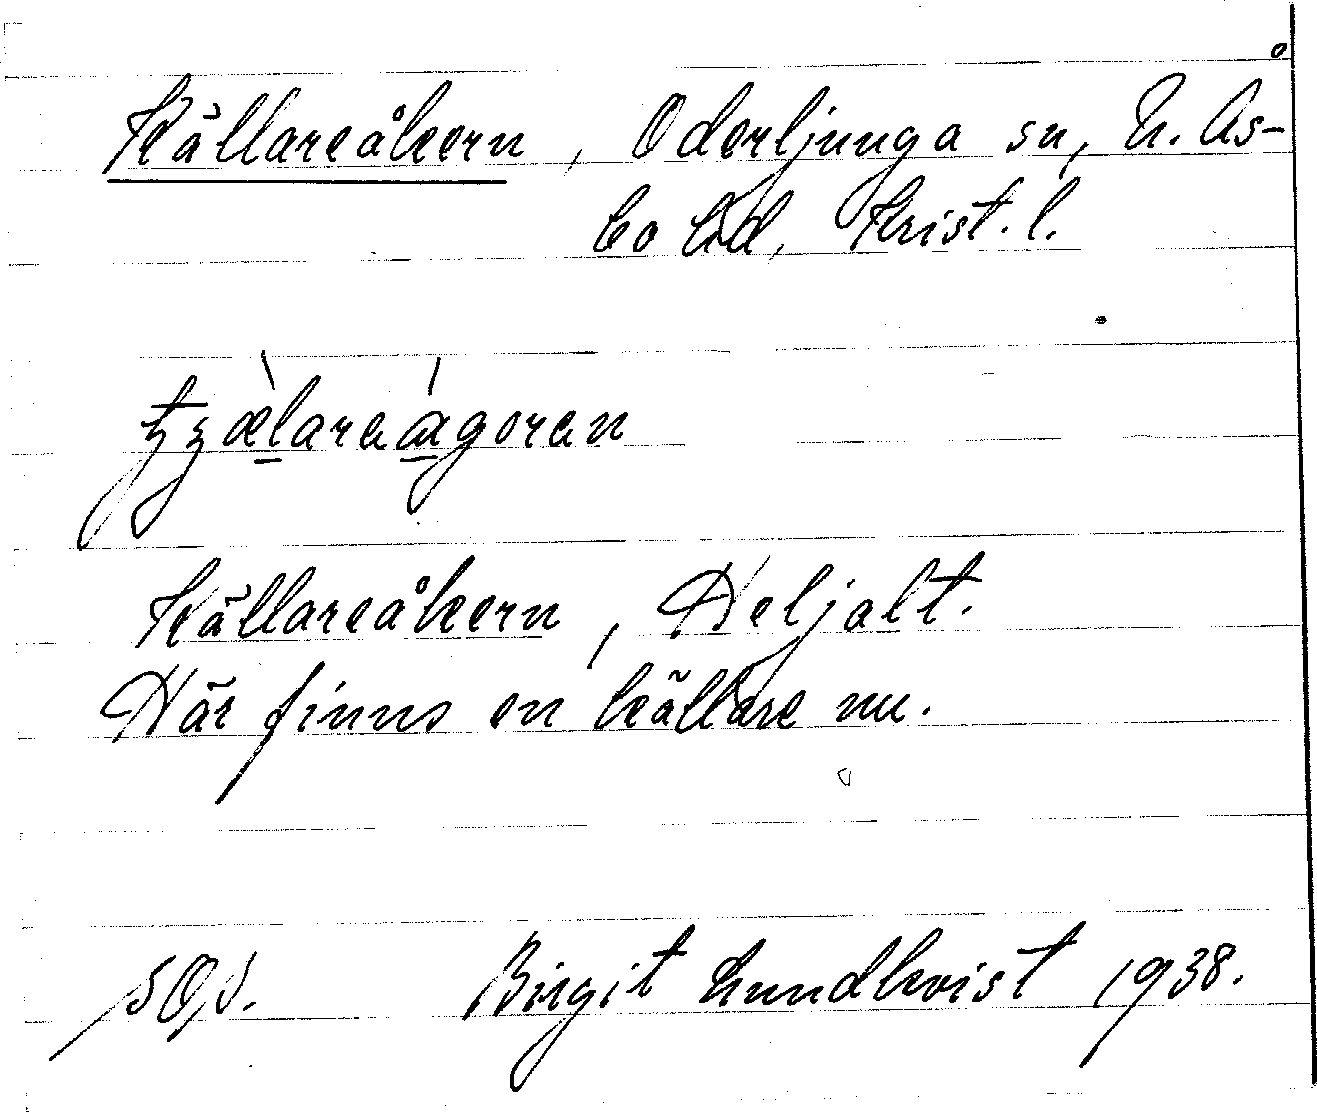 Källareåkern, Oderljunga sn, N. Ås-
bo hd, Krist. l.
Källareåkern, Heljalt.
Här finns en källare nu.
Birgit Lundkvist 1938.